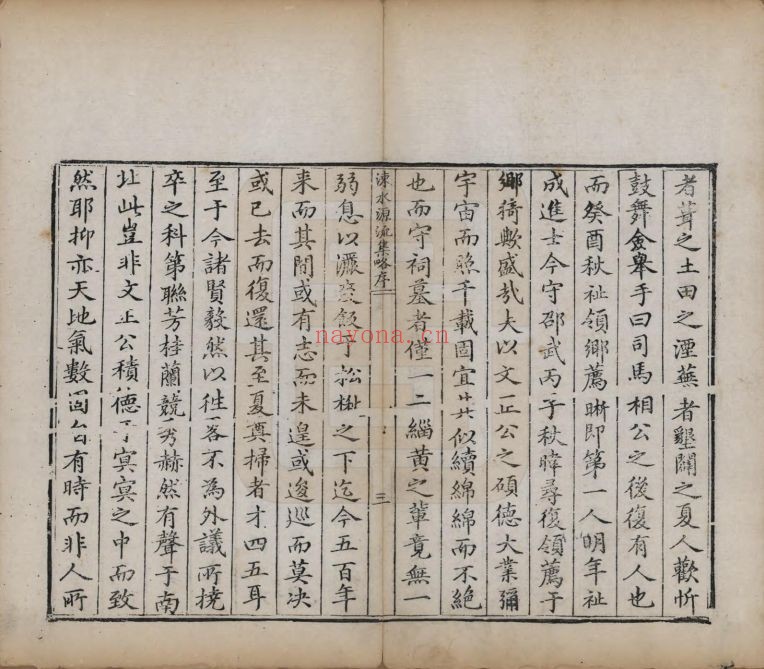 者葺之土田之湮蕪者墾闢之夏人歡忻
鼓舞僉舉手曰司馬相公之後復有人也
而癸酉秋祉領鄉薦晰即第一人明年祉
成進士今守邵武丙子秋暐尋復領薦于
鄉猗歟盛哉夫以文正公之碩德大業彌
宇宙而照千載固宜其似續綿綿而不絕
也而守祠墓者僅一二緇黃之輩竟無一
涑水源流集略序
三
弱息以灑盞飯于松楸之下迄今五百年
來而其間或有志而未遑或逡巡而莫决
或已去而復還其至夏奠掃者才四五耳
至于今諸賢毅然以徃各不為外議所撓
卒之科第聯芳桂蘭競秀赫然有聲于南
北此豈非文正公積德于寞寞之中而致
然耶抑亦天地氣數固自有時而非人所
nayona.cn